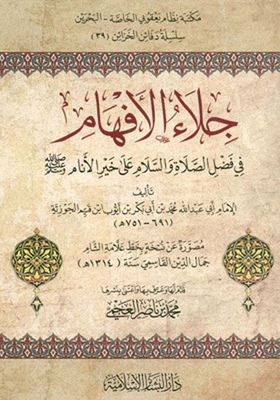 مكتبة نظام يعقوبي الخاصة - البحرين
سلسلة دفائن الخزائن (٣٩)
جلاء الأفهام
في فضل الصلاة والسلام على خير الأنام ﷺ
تأليف
الإمام أبي عبد الله محمد بن أبي بكر بن أيوب ابن قيم الجوزية
(٦٩١ - ٧٥١ هـ)
مصورة عن نسخة بخط علامة الشام
جمال الدين القاسمي سنة (١٣١٤ هـ)
قدم لها وعرف بها واعتنى بنشرها
محمد بن ناصر العجمي
دار البشائر الإسلامية